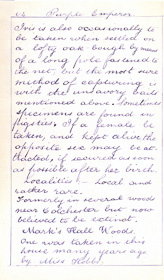 64 Purple Emperor.
Iris is also occasionally to
be taken when settled on
a lofty oak bough by means
of a long pole fastened to
the net, but the most sure
method of capturing is
with the unsavory baits
mentioned above, sometimes
specimens are found on
pigsties. If a female be
taken, and kept alive the
opposite sex may be at-
tracted, if secured as soon
as possible after her birth.
Localities – Local and
rather rare.
Formerly in several woods
near Colchester but now
believed to be extinct.
Mark's Hall Woods,
one was taken in this
time many years ago
by Miss